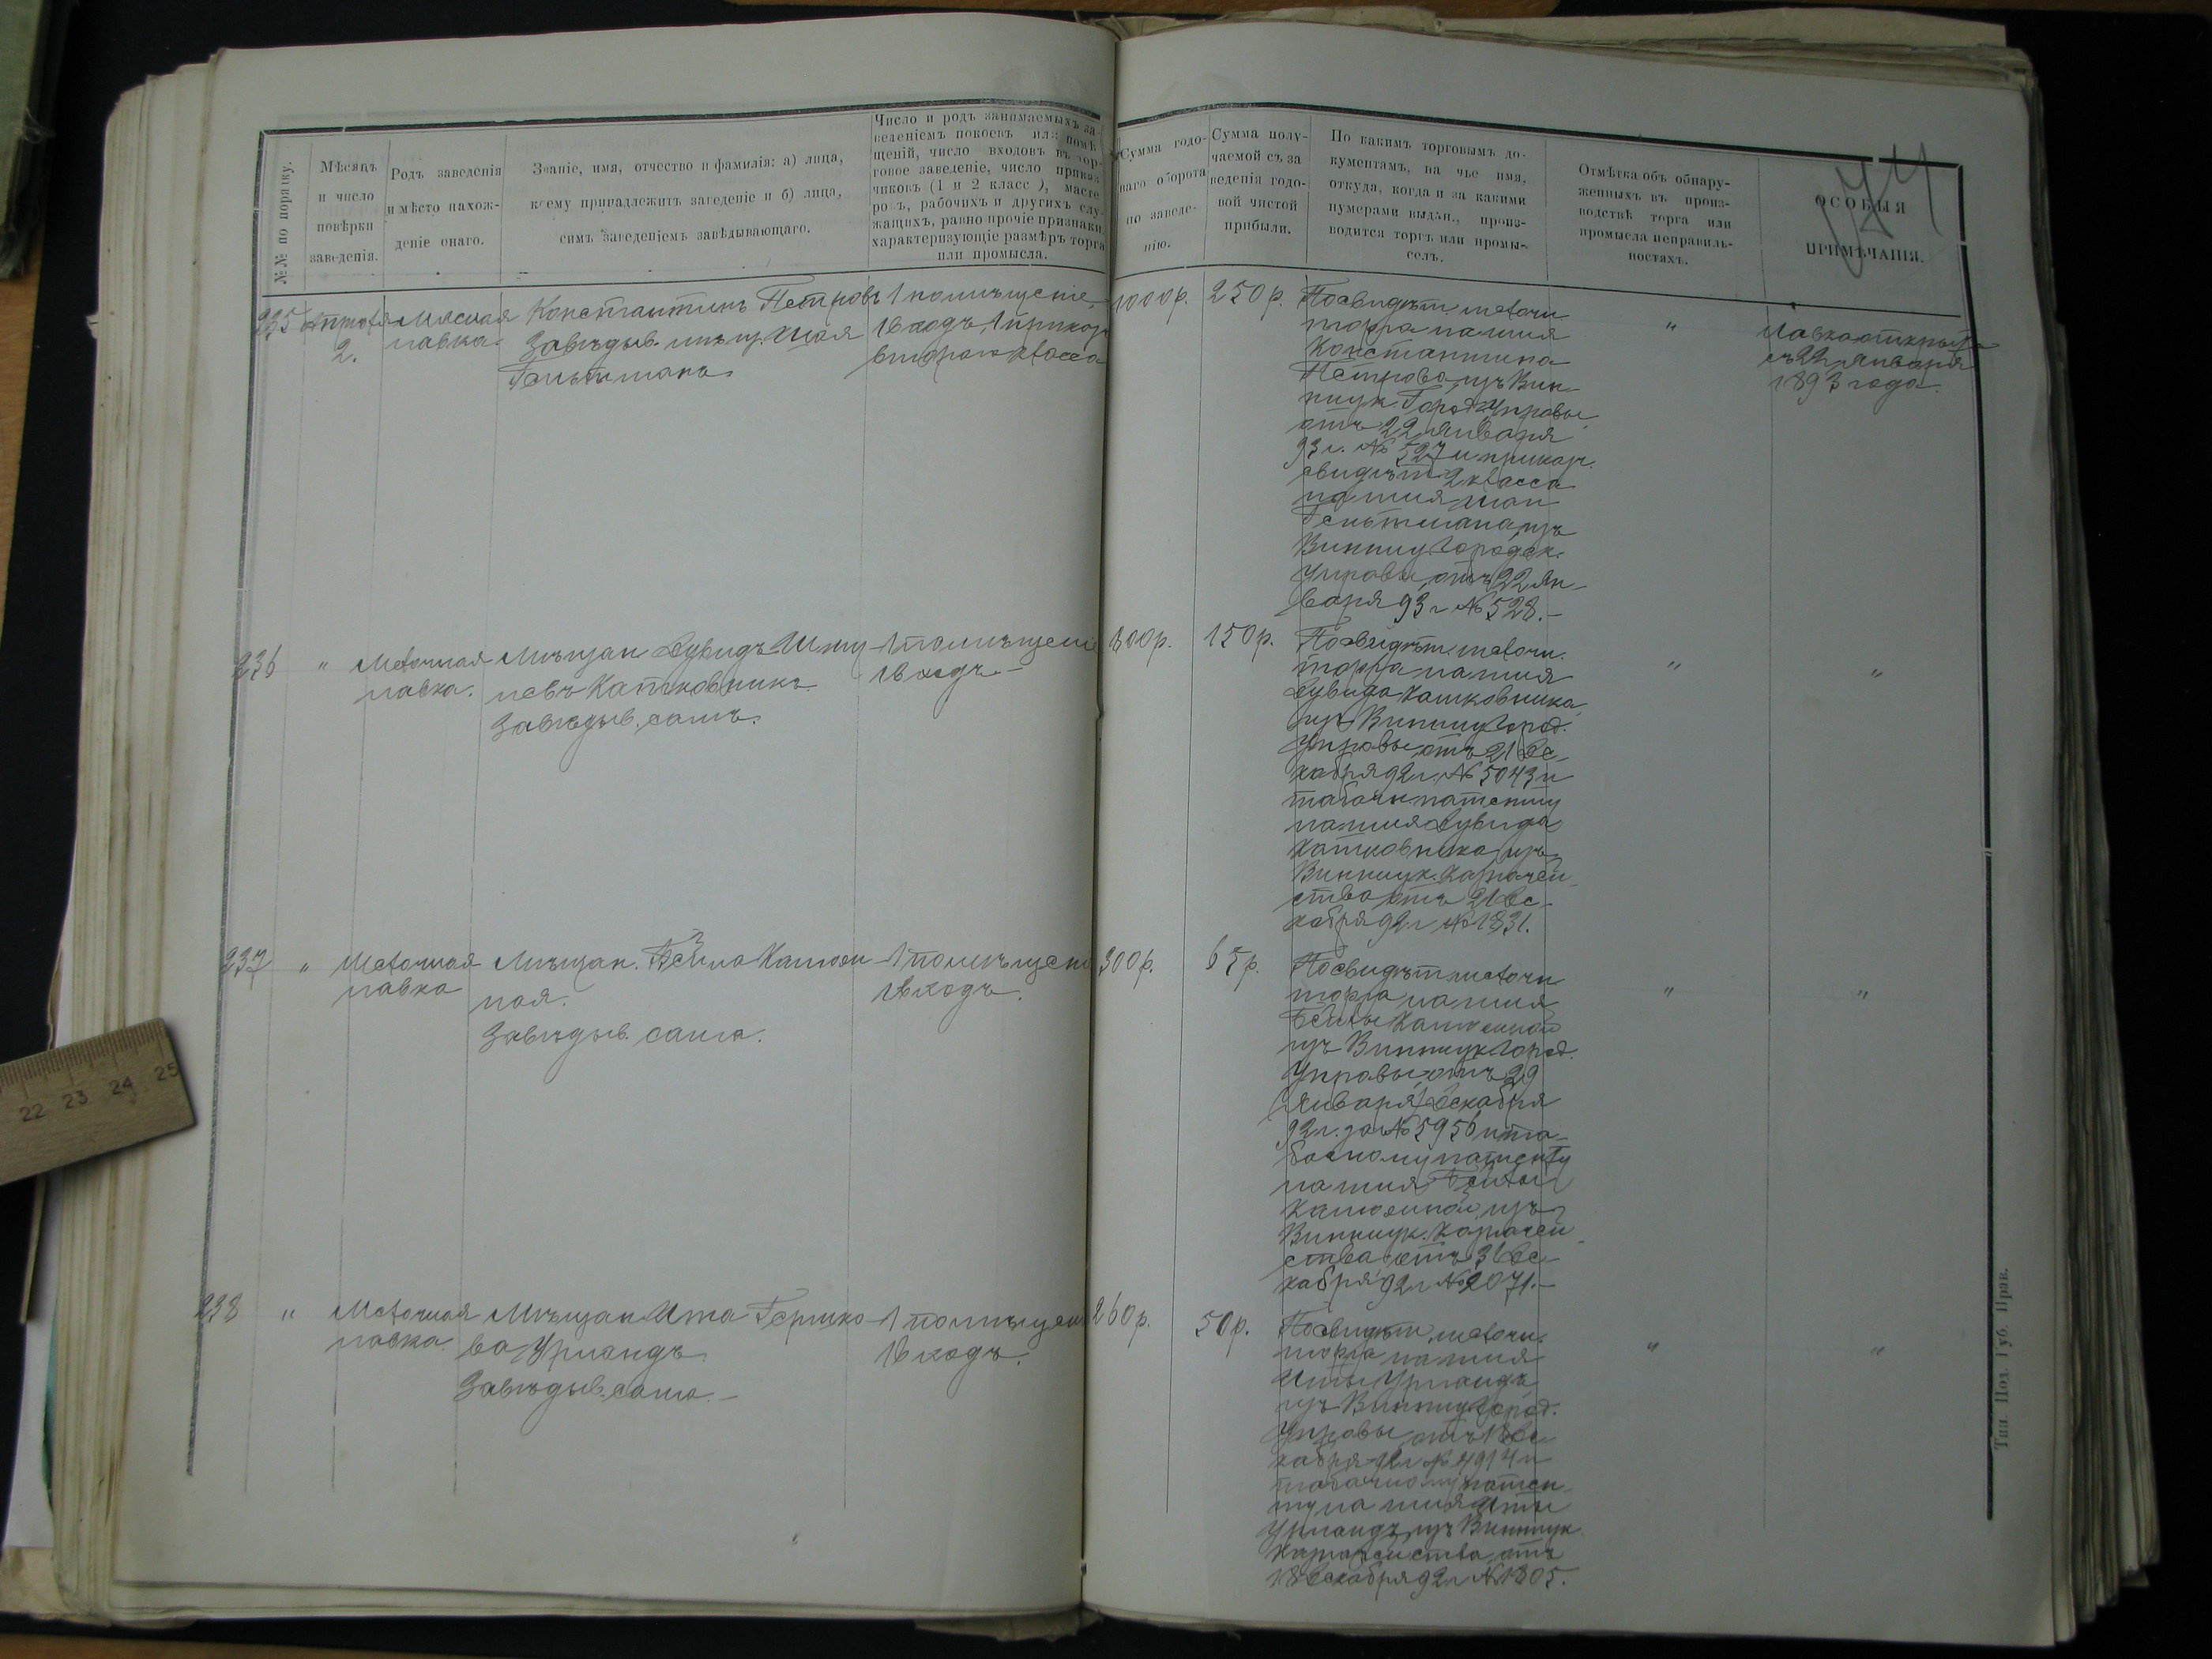 №№ по порядку.
Мѣсяцъ
и число
повѣрки
заведенія.
Родъ заведенія
и мѣсто нахож-
деніе онаго.
Званіе, имя, отчество и фамилія: а) лица,
коему принадлежитъ заведеніе и б) лица,
симъ заведеніемъ завѣдывающаго.
Число и родъ занимаемыхъ за-
веденіемъ покоевъ или помѣ
щеній, число входовъ въ тор-
говое заведеніе, число приказ
чиковъ (1 и 2 класс ), масте
ровъ, рабочихъ и другихъ слу-
жащихъ, равно прочіе признаки,
характеризующіе размѣръ торга
или промысла.
Сумма годо-
ваго оборота
по заведе-
нію.
Сумма полу-
чаемой съ за
веденія годо-
вой чистой
прибыли.
По какимъ торговымъ до-
кументамъ, на чье имя,
откуда, когда и за какими
нумерами выдан., произ-
водится торгъ или промы-
селъ.
Отмѣтка объ обнару-
женныхъ въ произ-
водствѣ торга или
промысла неправиль-
ностяхъ.
ОСОБЫЯ
ПРИМѢЧАНІЯ.
235
Апрѣля
2.
Мясная
лавка.
Константинъ Петровъ
Завѣдыв. мѣщ.
1 помѣщеніе
1 входъ, 1 приказ
втораго класса
1000 р.
250 р.
По свидѣт. мелочн.
торга на имя
Константина
Петрова, изъ Вин-
ницк. Город. Управы
отъ 22 Января
93 г. № 527 и приказ.
свидѣт. 2 класса
на имя
изъ
Винниц. Городск.
Управы, отъ 22 Ян-
варя 93 г № 528.-
"
Лавка открыта
съ 22 Января
1893 года.
236
"
Мелочная
лавка.
Мѣщан. Дувидъ
левъ Катковникъ.
Завѣдыв. самъ.
1 помѣщеніе
1 входъ. -
800 р.
150 р.
По свидѣт. мелочн.
торга на имя
Дувида Катковника,
изъ Винниц. Город.
Управы отъ 21 Де-
кабря 92 г. № 5043 и
табачн. патенту
на имя Дувида
Катковника, изъ
Винницк. Казначей-
ства отъ 21 Де-
кабря 92 г № 1831.
"
"
237
"
Мелочная
лавка
Мѣщан. Бейла
ная.
Завѣдыв. сама.
1 помѣщеніе
1 входъ.
300 р.
65 р.
По свидѣт. мелочн.
торга на имя
Бейлы
изъ Винницк. Город.
Управы, отъ 29
Января Декабря
92 г. за № 5956 и та-
бачному патенту
на имя Бейлы
изъ
Винницк. Казначей-
ства отъ 31 Де-
кабря 92 г № 2071.-
"
"
238
"
Мелочная
лавка.
Мѣщан. Ита Гершко-
ва Урландъ.
Завѣдыв. сама. -
1 помѣщен
1 входъ.
260 р.
50 р.
По свидѣт. мелочн.
торга на имя
Иты Урландъ
изъ Винниц. Город.
Управы отъ 18 Де-
кабря 92 г № 4914 и
табачному патен-
ту на имя Иты
Урландъ, изъ Винницк.
Казначейства, отъ
18 Декабря 92 г № 1805.
"
"
Тип. Под. Губ. Прав.